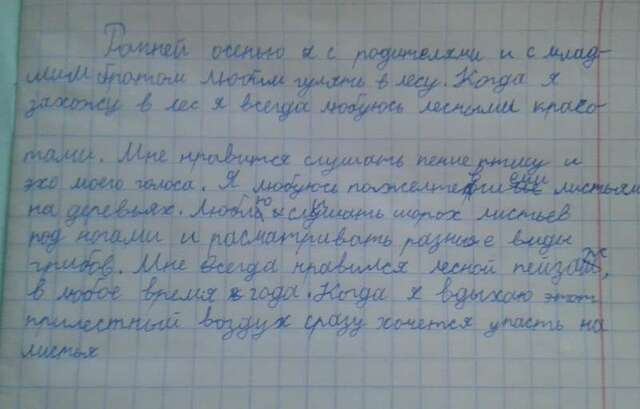 Ранней осенью я с родителями и с млад-
шим братом любим гулять в лесу. Когда я
захожу в лес я всегда любуюсь лесными красо-
тами. Мне нравится слушать пение птиц и
эхо моего голоса. Я любуюсь пожелтевшими листьями
на деревьях. Люблю слушать шорох листьев
под ногами и расматривать разные виды
грибов. Мне всегда нравился лесной пейзаж,
в любое время года. Когда я вдыхаю этот
прилестный воздух сразу хочется упасть на
листья